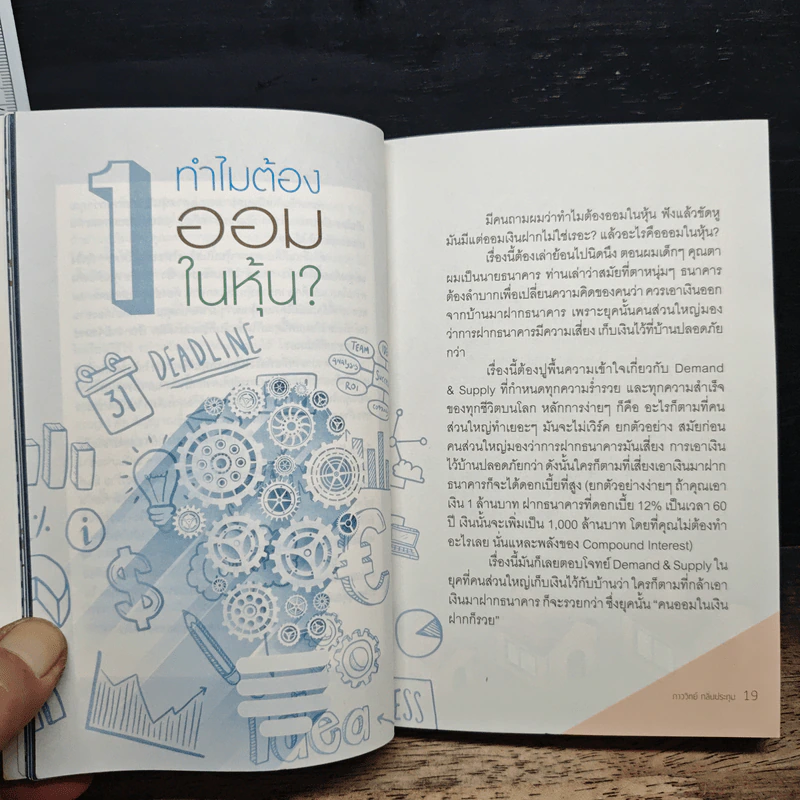 1
ทำไมต้อง
ออม
ในหุ้น?
DEADLINE
31
TEAM
ROI
%
i
$
€
Idea
ESS
มีคนถามผมว่าทำไมต้องออมในหุ้น ฟังแล้วขัดหู
มันมีแต่ออมเงินฝากไม่ใช่เรอะ? แล้วอะไรคือออมในหุ้น?
เรื่องนี้ต้องเล่าย้อนไปนิดนึง ตอนผมเด็กๆ คุณตา
ผมเป็นนายธนาคาร ท่านเล่าว่าสมัยที่ตาหนุ่มๆ ธนาคาร
ต้องลำบากเพื่อเปลี่ยนความคิดของคนว่า ควรเอาเงินออก
จากบ้านมาฝากธนาคาร เพราะยุคนั้นคนส่วนใหญ่มอง
ว่าการฝากธนาคารมีความเสี่ยง เก็บเงินไว้ที่บ้านปลอดภัย
กว่า
เรื่องนี้ต้องปูพื้นความเข้าใจเกี่ยวกับ Demand
& Supply ที่กำหนดทุกความร่ำรวย และทุกความสำเร็จ
ของทุกชีวิตบนโลก หลักการง่ายๆ ก็คือ อะไรก็ตามที่คน
ส่วนใหญ่ทำเยอะๆ มันจะไม่เวิร์ค ยกตัวอย่าง สมัยก่อน
คนส่วนใหญ่มองว่าการฝากธนาคารมันเสี่ยง การเอาเงิน
ไว้บ้านปลอดภัยกว่า ดังนั้นใครก็ตามที่เสี่ยงเอาเงินมาฝาก
ธนาคารก็จะได้ดอกเบี้ยที่สูง (ยกตัวอย่างง่ายๆ ถ้าคุณเอา
เงิน 1 ล้านบาท ฝากธนาคารที่ดอกเบี้ย 12% เป็นเวลา 60
ปี เงินนั้นจะเพิ่มเป็น 1,000 ล้านบาท โดยที่คุณไม่ต้องทำ
อะไรเลย นั่นแหละพลังของ Compound Interest)
เรื่องนี้มันก็เลยตอบโจทย์ Demand & Supply ใน
ยุคที่คนส่วนใหญ่เก็บเงินไว้กับบ้านว่า ใครก็ตามที่กล้าเอา
เงินมาฝากธนาคาร ก็จะรวยกว่า ซึ่งยุคนั้น "คนออมในเงิน
ฝากก็รวย"
ภาววิทย์ กลิ่นประทุม 19